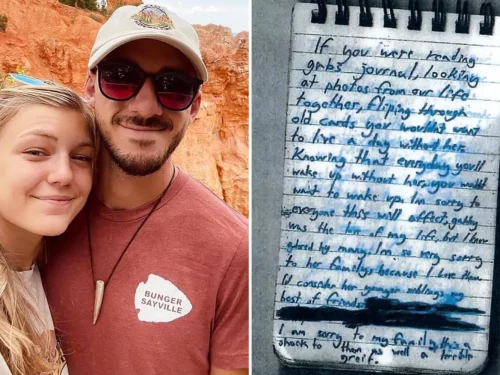 BUNGER
SAYVILLE
If you were reading
gabs journal, looking
at photos from our life
together, fliping through
old cards you wouldnt want
to live a day without her.
Knowing that everyday you'll
wake up without her, you wouldnt
want to wake up. Im sorry to
everyone this will affect, gabby
was the love of my life, but I know
adored by many. Im so very sorry
to her family, because I love them.
I'd consider her younger siblings my
best of friends
I am sorry to my family, this is a
shock to them as well a terrible
greif.